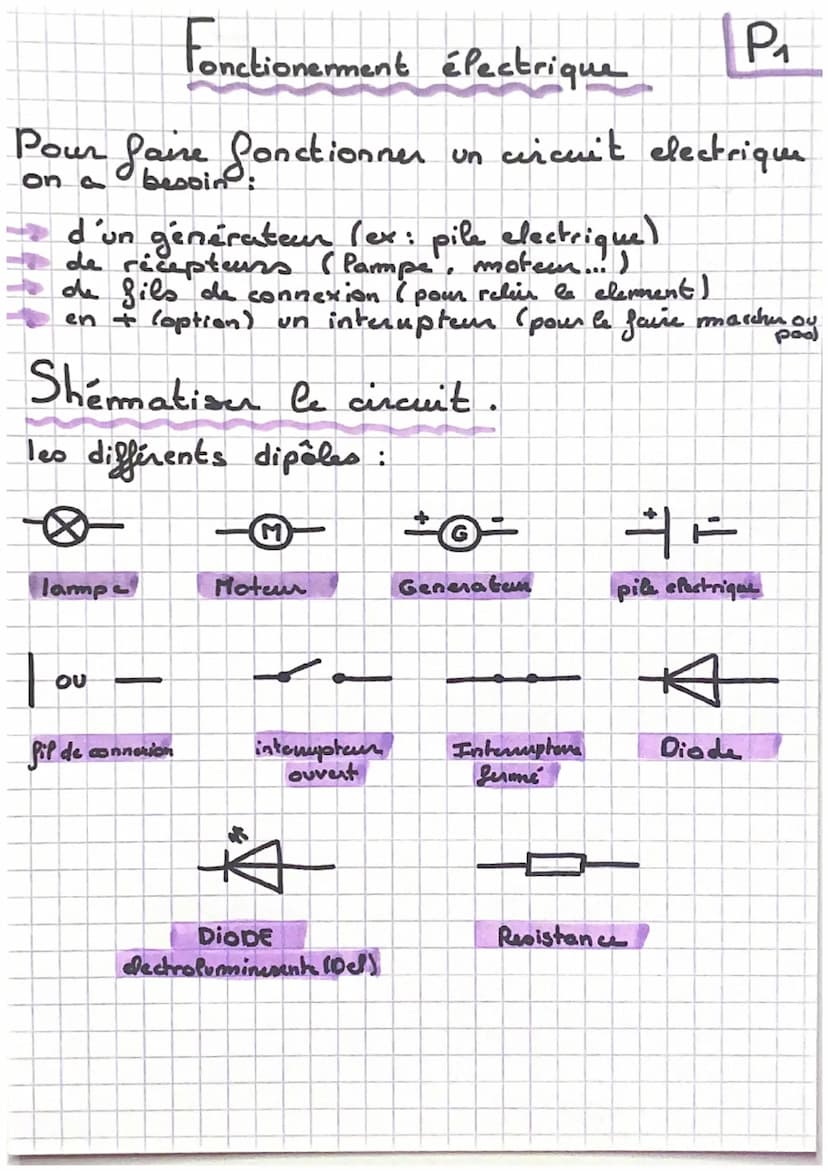 Fonctionement électrique
P1
Pour faire fonctionner un circuit electrique
on a besoin :
d'un générateur (ex : pile electrique)
de récepteurs (lampe, moteur...)
de fils de connexion (pour relier le element)
en + (option) un interupteur (pour le faire marcher ou
pas)
Shématiser le circuit.
les différents dipôles :
M
+ G -
+ -
lampe Moteur Generateur pile electrique
OU
fil de connexion interrupteur Interrupteur Diode
ouvert fermé
DIODE Resistance
electroluminesente (Del)